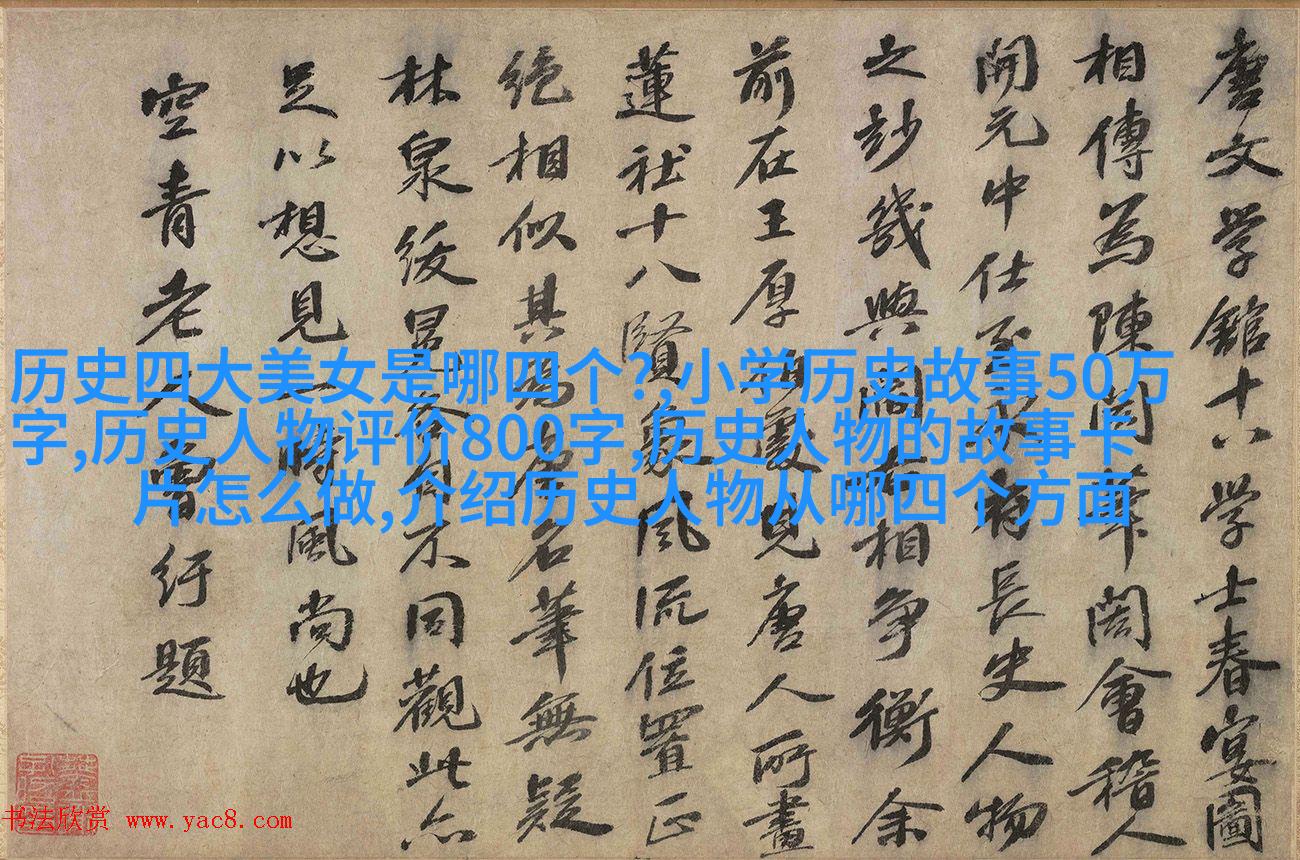 唐文学舘十八学士春宴圖
相傳為陳閎筆閎會稽人
開元中仕至長史人物
之妙幾與閻相争衡余
前在王厚處見唐人所畫
蓮社十八賢風流位置正
絶相似其為唐名筆無疑
林泉綬冕各自不同觀此亦
足以想見一時風尚也
空青老人曽紆題
历史四大美女是哪四个?,小学历史故事50万
字,历史人物评价800字,历史人物的故事卡
片怎么做,介绍历史人物从哪四个方面
书法欣赏 www.yac8.com